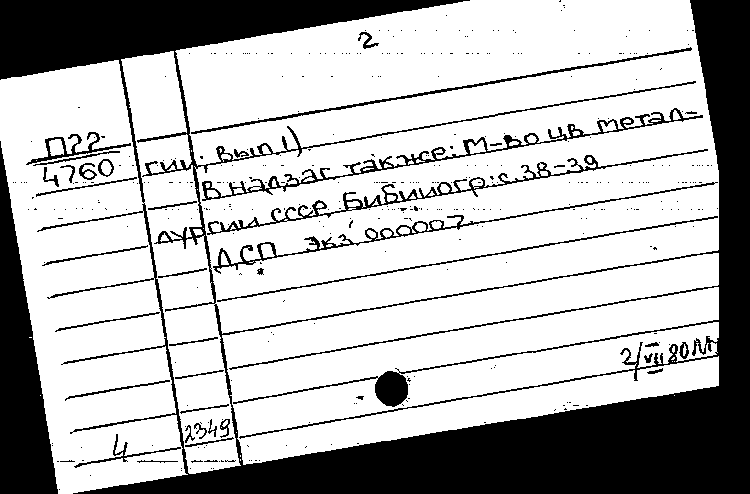 2
П22
4760
гии; Вып 1)
В надзаг также: М-во цв метал-
лургии СССР. Библиогр: с. 38-39
ДСП Экз 000007
2/VII 80
4
2349